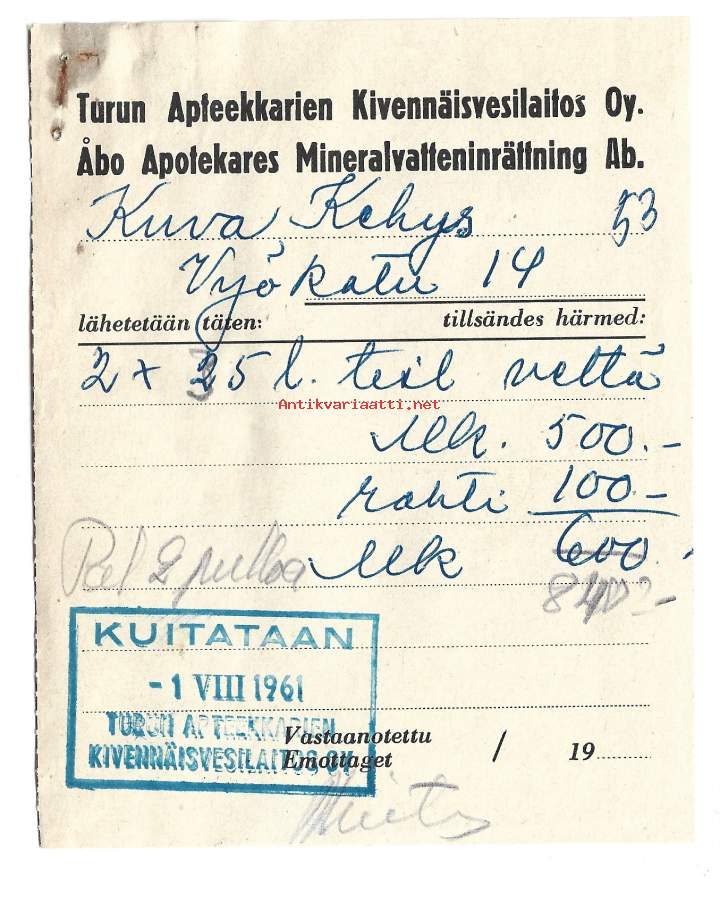 Turun Apteekkarien Kivennäisvesilaitos Oy.
Åbo Apotekares Mineralvatteninrättning Ab.
Kuva Kehys 53
Yjökatu 14
lähetetään täten: tillsändes härmed:
2 x 25 l. tisl vettä
Antikvariaatti.net
Mk. 500.-
rahti 100.-
Mk 600.-
Pal 2 pulloa
840.-
KUITATAAN
-1 VIII 1961
TURUN APTEEKKARIEN
KIVENNÄISVESILAITOS OY
Vastaanotettu
Emottaget / 19